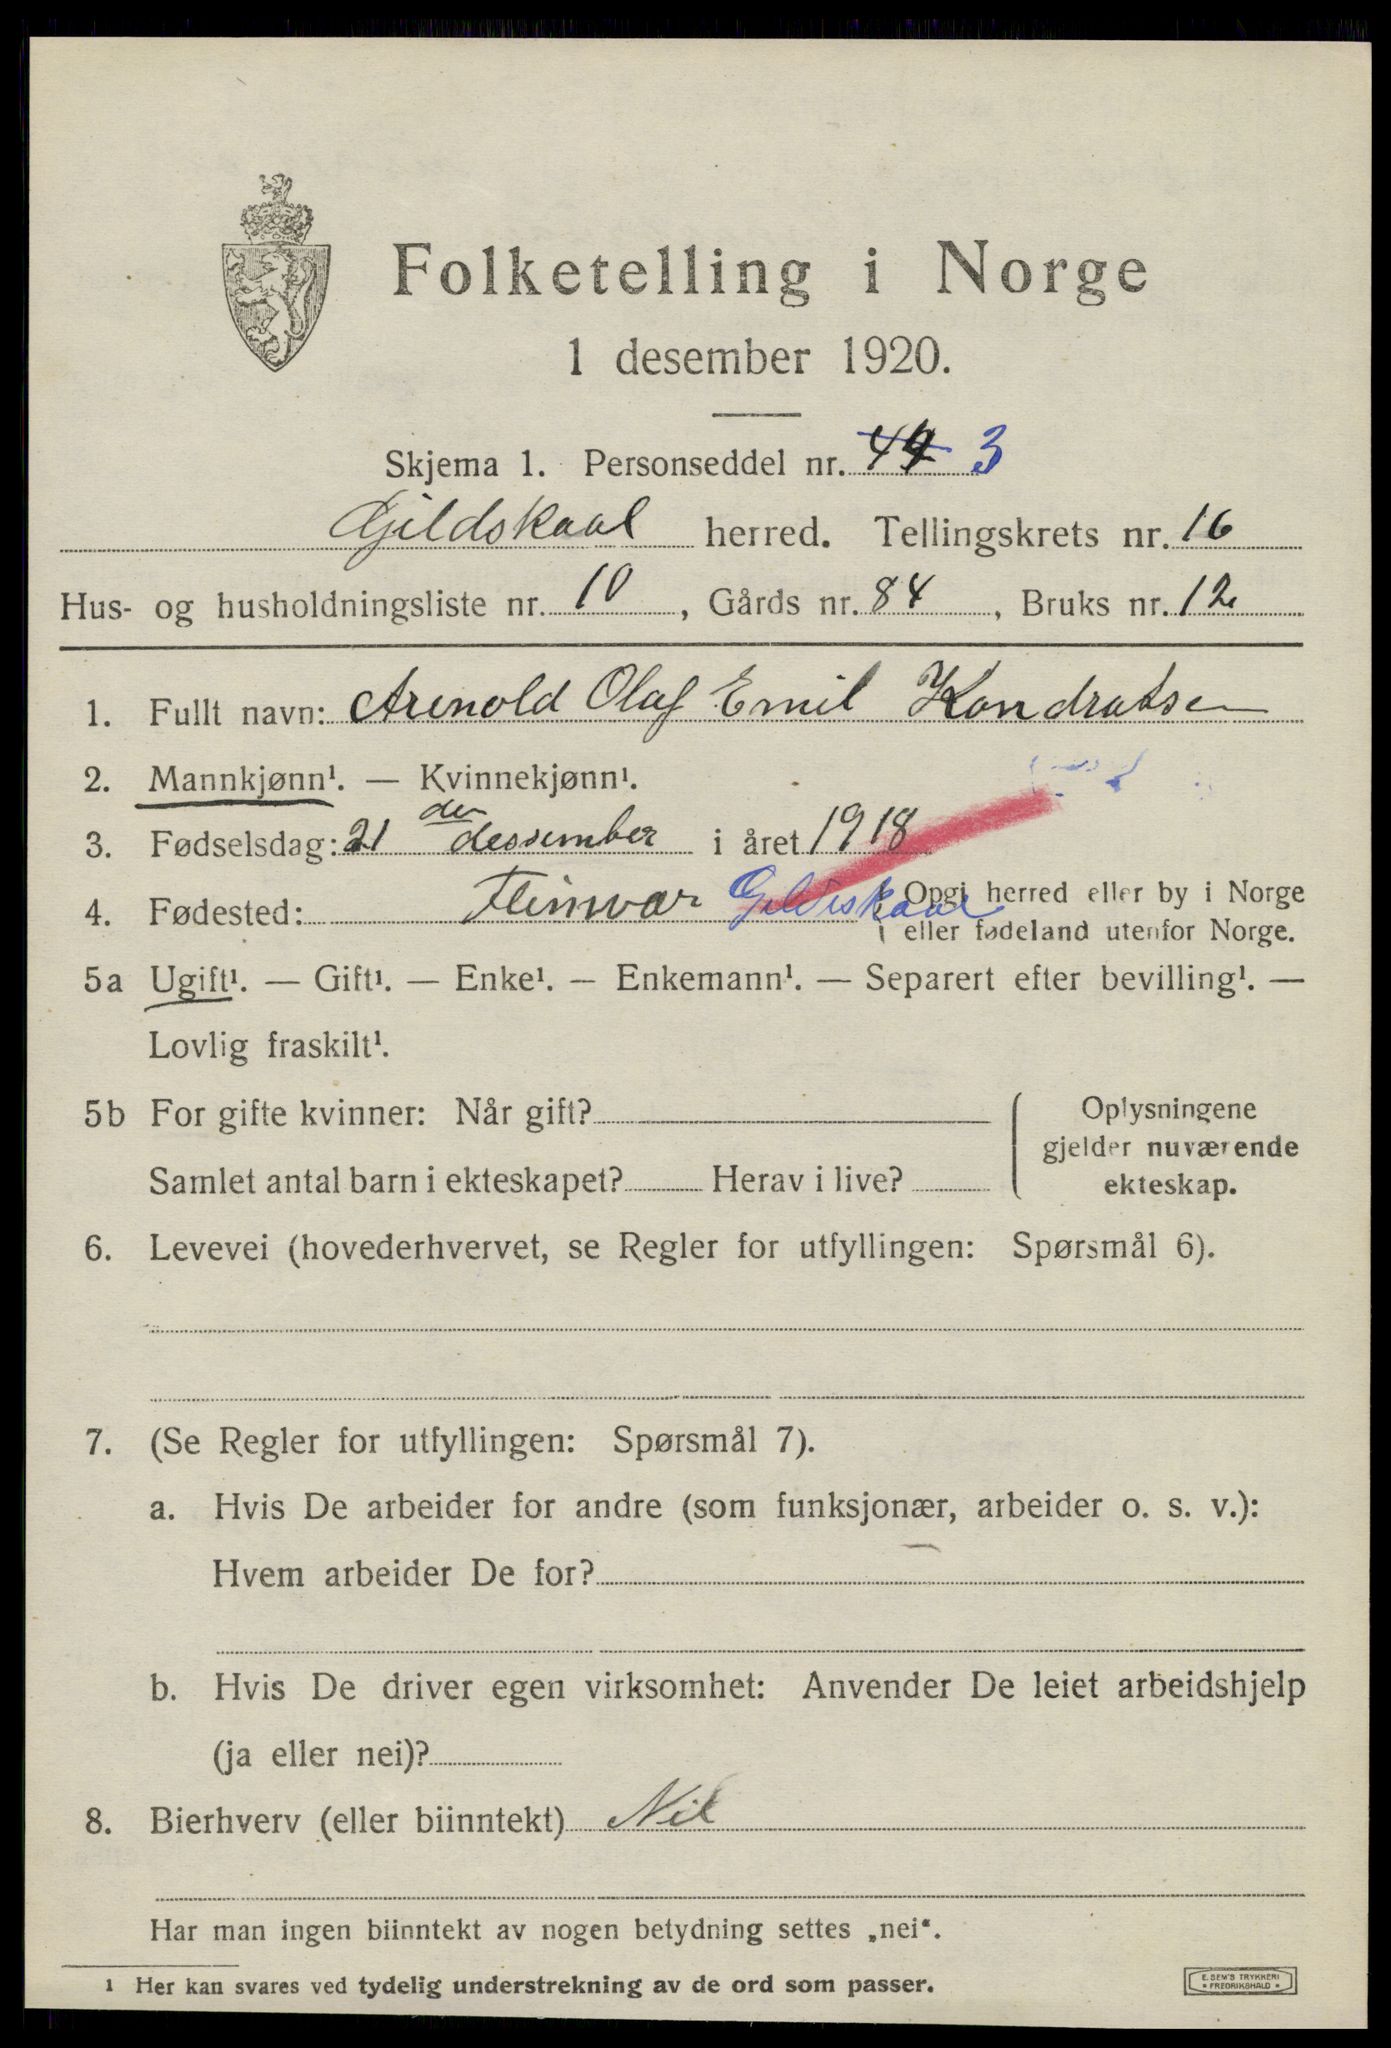 Folketelling i Norge
1 desember 1920.
Skjema 1. Personseddel nr. 44 3
Gildskaal herred. Tellingskrets nr. 16
Hus- og husholdningsliste nr. 10, Gårds nr. 84, Bruks nr. 12
1. Fullt navn: Arnold Olaf Emil Kondratsen
2. Mannkjønn¹. — Kvinnekjønn¹.
3. Fødselsdag: 21 den dessember i året 1918
4. Fødested: Fleinvær Gildeskaal { Opgi herred eller by i Norge
eller fødeland utenfor Norge.
5a Ugift¹. — Gift¹. — Enke¹. — Enkemann¹. — Separert efter bevilling¹. —
Lovlig fraskilt¹.
5b For gifte kvinner: Når gift?
Samlet antal barn i ekteskapet? Herav i live?
Oplysningene
gjelder nuværende
ekteskap.
6. Levevei (hovederhvervet, se Regler for utfyllingen: Spørsmål 6).
7. (Se Regler for utfyllingen: Spørsmål 7).
a. Hvis De arbeider for andre (som funksjonær, arbeider o. s. v.):
Hvem arbeider De for?
b. Hvis De driver egen virksomhet: Anvender De leiet arbeidshjelp
(ja eller nei)?
8. Bierhverv (eller biinntekt) Nil
Har man ingen biinntekt av nogen betydning settes „nei“.
1 Her kan svares ved tydelig understrekning av de ord som passer.
E. SEM'S TRYKKERI
* FREDRIKSHALD *